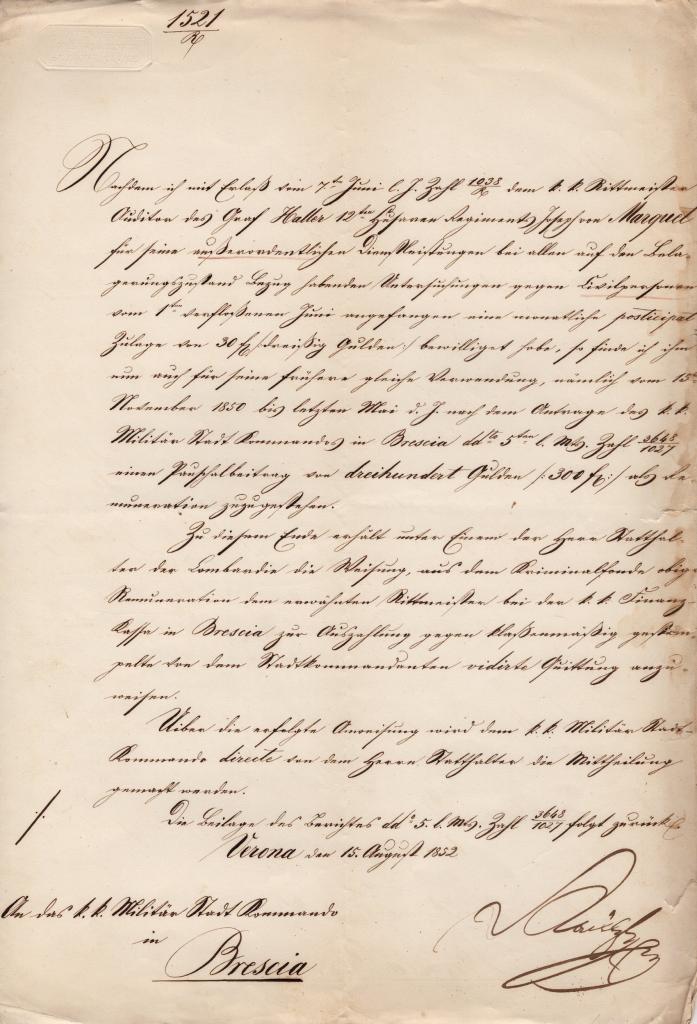 1521
R
Nachdem ich mit Erlaß vom 7ten Juni l. J. Zahl 1038/R dem k. k. Rittmeister
Auditor des Graf Haller 12ten Husaren Regiments Joseph von Marquet
für seine außerordentlichen Dienstleistungen bei allen auf den Bela-
gerungszustand Bezug habenden Untersuchungen gegen Civilpersonen
vom 1ten verfloßenen Juni angefangen eine monatliche posticipat
Zulage von 30 f /: dreißig Gulden :/ bewilliget habe, so finde ich ihm
nun auch für seine frühere gleiche Verwendung, nämlich vom 15ten
November 1850 bis letzten Mai d. J. nach dem Antrage des k. k.
Militär Stadt Kommandos in Brescia ddto 5ten l. Mts. Zahl 3648/1027
einen Pauschalbeitrag von dreihundert Gulden /: 300 f :/ als Re-
muneration zuzugestehen.
Zu diesem Ende erhält unter Einem der Herr Statthal-
ter der Lombardie die Weisung, aus dem Kriminalfonde obige
Remuneration dem erwähnten Rittmeister bei der k. k. Finanz-
Kassa in Brescia zur Auszahlung gegen klaßenmäßig gestem-
pelte von dem Stadtkommandanten vidirte Quittung anzu-
weisen.
Uiber die erfolgte Anweisung wird dem k. k. Militär Stadt-
Kommando directe von dem Herrn Statthalter die Mittheilung
gemacht werden.
Die Beilage des Berichtes ddo 5. l. Mts. Zahl 3648/1027 folgt zurück.
Verona den 15. August 1852
An das k. k. Militär Stadt Kommando
in
Brescia